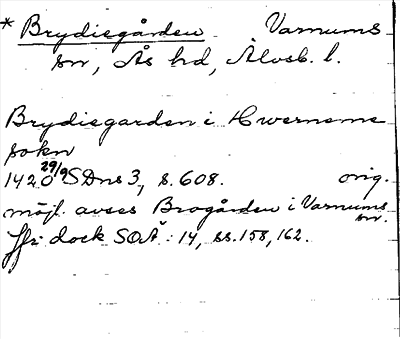 * Brydiegården Varnums
sn, Ås hd, Älvsb. l.
Brydiegarden i Hwerneme
sokn
1420 29/9 SDns 3, s. 608. orig.
möjl. avses Brogården i Varnums
sn.
Jfr dock SOÄ: 14, ss. 158, 162.